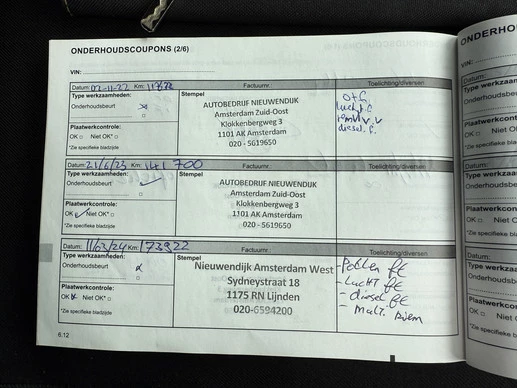 ONDERHOUDSCOUPONS (2/6)
VIN:
Datum: 02-11-22 Km: Factuurnr.: Toelichting/diversen
Type werkzaamheden:
Onderhoudsbeurt
Plaatwerkcontrole:
OK Niet OK*
*Zie specifieke bladzijde
Stempel
AUTOBEDRIJF NIEUWENDIJK
Amsterdam Zuid-Oost
Klokkenbergweg 3
1101 AK Amsterdam
020 - 5619650
o+f
lucht.f.
remvl.v.v
diesel.f.
Datum: 21/6/23 Km: 141 700 Factuurnr.: Toelichting/diversen
Type werkzaamheden:
Onderhoudsbeurt
Plaatwerkcontrole:
OK Niet OK*
*Zie specifieke bladzijde
Stempel
AUTOBEDRIJF NIEUWENDIJK
Amsterdam Zuid-Oost
Klokkenbergweg 3
1101 AK Amsterdam
020 - 5619650
Datum: 11/03/24 Km: 173922 Factuurnr.: Toelichting/diversen
Type werkzaamheden:
Onderhoudsbeurt
Plaatwerkcontrole:
OK Niet OK*
*Zie specifieke bladzijde
Stempel
Nieuwendijk Amsterdam West
Sydneystraat 18
1175 RN Lijnden
020-6594200
- Pollen
- Lucht
- diesel
- Mult. Riem
6.12
ONDERHO
VIN:
Datum:
Type werkzaamh
Onderhoudsbeurt
Plaatwerkcontrol
OK Niet OK*
*Zie specifieke blad
Datum:
Type werkzaamh
Onderhoudsbeu
Plaatwerkcont
OK Niet O
*Zie specifieke b
Datum:
Type werkza
Onderhouds
Plaatwerkc
OK Ni
*Zie specifi